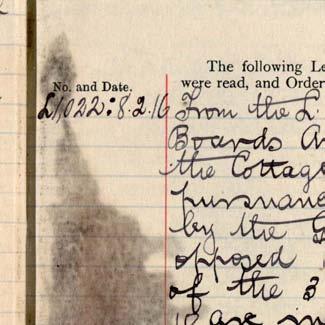 The following Le
No. and Date. were read, and Order
L1022:8.2.16 From the L.
Boards A
the Cottage
pursuance
by the G
opposed
of the 3
are in